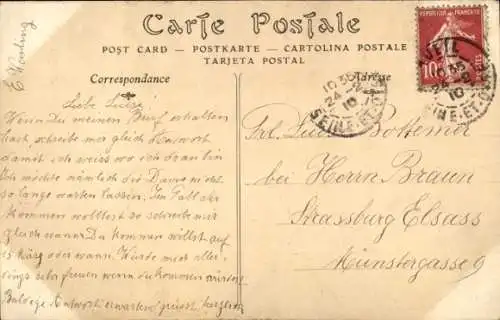 Carte Postale
POST CARD — POSTKARTE — CARTOLINA POSTALE
TARJETA POSTAL
Correspondance
Adresse
REPUBLIQUE FRANÇAISE
10
10 35
24
10
SEINE-ET-OISE
Liebe Luise!
Wenn Du meinen Brief erhalten
hast, schreibe mir gleich Antwort
damit ich weiss wo ich dran bin
Ich möchte nämlich die Dame nicht
so lange warten lassen. Im Fall der
kommen wolltest so schreibe mir
gleich wann Du kommen willst auf
15 März oder wann. Würde mich aller-
dings sehr freuen wenn du kommen würdest
Baldige Antwort erwartend grüsst herzlich
E
Frl. Luise Bottemer
bei Herrn Braun
Strassburg Elsass
Münstergasse 9